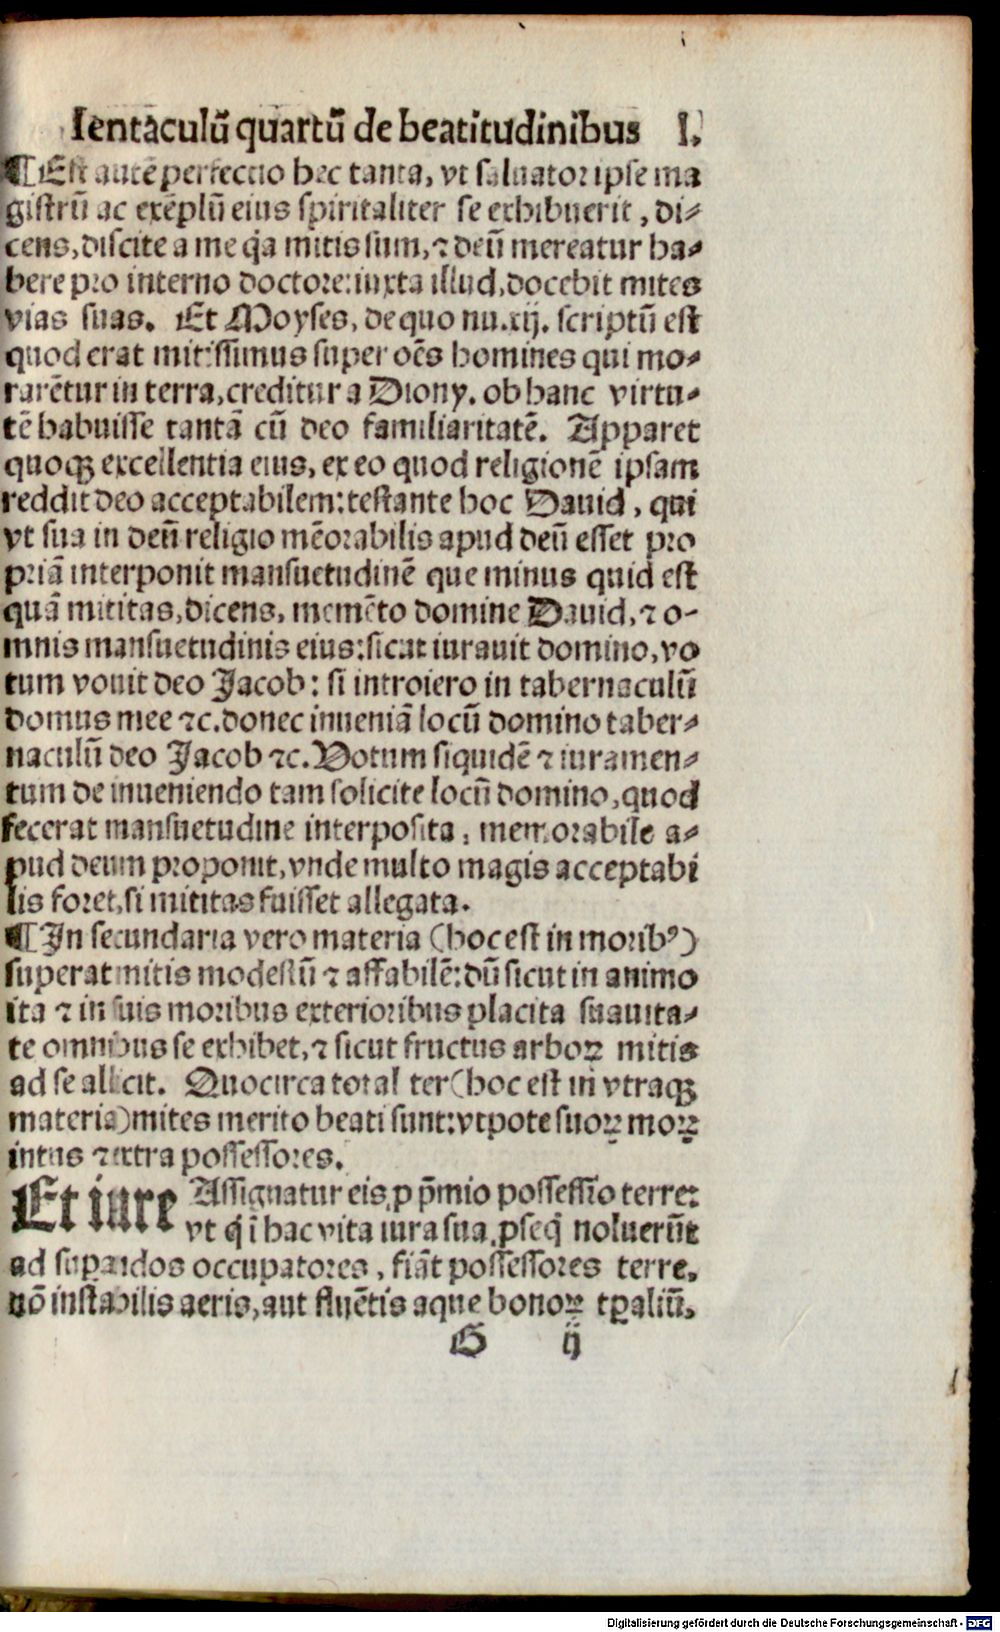 Ientaculū quartū de beatitudinibus L.
¶Est autē perfectio hec tanta, vt saluator ipse ma
gistrū ac exēplū eius spiritaliter se exhibuerit, di⸗
cens, discite a me q̇a mitis sum, ⁊ deū mereatur ha⸗
bere pro interno doctore: iuxta illud, docebit mites
vias suas. Et Moyses, de quo nu.xij. scriptū est
quod erat mitissimus super oēs homines qui mo⸗
rarētur in terra, creditur a Diony. ob hanc virtu⸗
tē habuisse tantā cū deo familiaritatē. Apparet
quoqꝫ excellentia eius, ex eo quod religionē ipsam
reddit deo acceptabilem: testante hoc Dauid, qui
vt sua in deū religio mēorabilis apud deū esset pro
priā interponit mansuetudinē que minus quid est
quā mititas, dicens, memēto domine Dauid, ⁊ o-
mnis mansuetudinis eius: sicut iurauit domino, vo
tum vouit deo Jacob: si introiero in tabernaculū
domus mee ⁊c. donec inueniā locū domino taber⸗
naculū deo Jacob ⁊c. Votum siquidē ⁊ iuramen⸗
tum de inueniendo tam solicite locū domino, quod
fecerat mansuetudine interposita, memorabile a⸗
pud deum proponit, vnde multo magis acceptabi
lis foret, si mititas fuisset allegata.
¶In secundaria vero materia (hoc est in moribꝰ)
superat mitis modestū ⁊ affabilē: dū sicut in animo
ita ⁊ in suis moribus exterioribus placita suauita⸗
te omnibus se exhibet, ⁊ sicut fructus arboꝝ mitis
ad se allicit. Quocirca total ter (hoc est in vtraqꝫ
materia) mites merito beati sunt: vtpote suoꝝ moꝝ
intus ⁊ extra possessores.
Et iure Assignatur eis ꝓ p̄mio possessio terre:
vt q̇ ī hac vita iura sua ꝓseq̇ noluerūt
ad supādos occupatores, fiāt possessores terre,
nō instabilis aeris, aut fluētis aque bonoꝝ tꝑaliū,
G ij
Digitalisierung gefördert durch die Deutsche Forschungsgemeinschaft - DFG